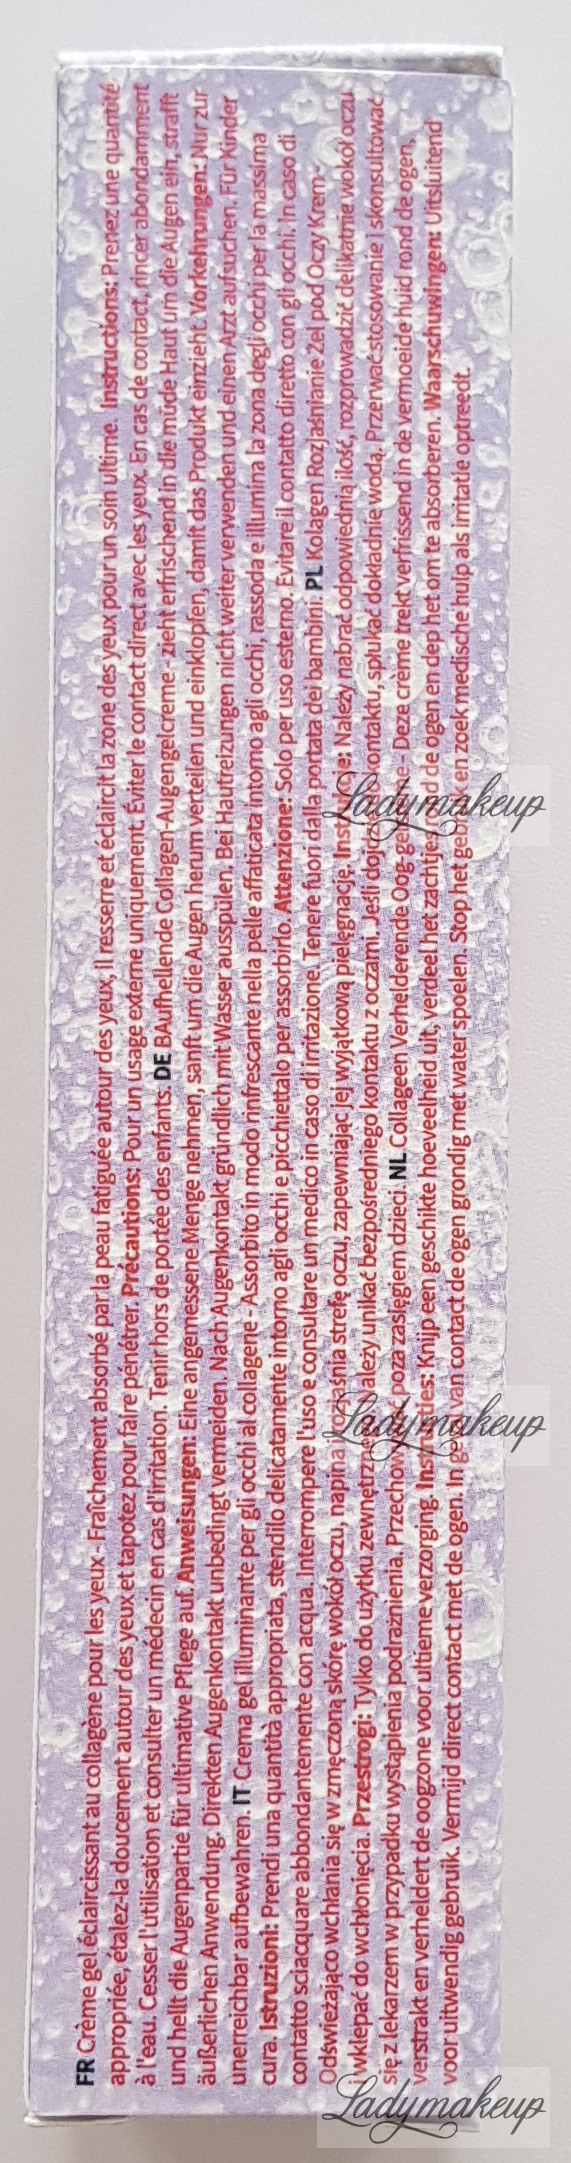 FR Crème gel éclaircissant au collagène pour les yeux - Fraîchement absorbé par la peau fatiguée autour des yeux, il resserre et éclaircit la zone des yeux pour un soin ultime. Instructions: Prenez une quantité
appropriée, étalez-la doucement autour des yeux et tapotez pour faire pénétrer. Précautions: Pour un usage externe uniquement. Éviter le contact direct avec les yeux. En cas de contact, rincer abondamment
à l'eau. Cesser l'utilisation et consulter un médecin en cas d'irritation. Tenir hors de portée des enfants. DE BAufhellende Collagen-Augengelcreme - zieht erfrischend in die müde Haut um die Augen ein, strafft
und hellt die Augenpartie für ultimative Pflege auf. Anweisungen: Eine angemessene Menge nehmen, sanft um die Augen herum verteilen und einklopfen, damit das Produkt einzieht. Vorkehrungen: Nur zur
äußerlichen Anwendung. Direkten Augenkontakt unbedingt vermeiden. Nach Augenkontakt gründlich mit Wasser ausspülen. Bei Hautreizungen nicht weiter verwenden und einen Arzt aufsuchen. Für Kinder
unerreichbar aufbewahren. IT Crema gel illuminante per gli occhi al collagene - Assorbito in modo rinfrescante nella pelle affaticata intorno agli occhi, rassoda e illumina la zona degli occhi per la massima
cura. Istruzioni: Prendi una quantità appropriata, stendilo delicatamente intorno agli occhi e picchiettalo per assorbirlo. Attenzione: Solo per uso esterno. Evitare il contatto diretto con gli occhi. In caso di
contatto sciacquare abbondantemente con acqua. Interrompere l'uso e consultare un medico in caso di irritazione. Tenere fuori dalla portata dei bambini. PL Kolagen Rozjaśnianie Żel pod Oczy Krem -
Odświeżająco wchłania się w zmęczoną skórę wokół oczu, napina i rozjaśnia strefę oczu, zapewniając jej wyjątkową pielęgnację. Instrukcje: Należy nabrać odpowiednią ilość, rozprowadzić delikatnie wokół oczu
i wklepać do wchłonięcia. Przestrogi: Tylko do użytku zewnętrznego. Należy unikać bezpośredniego kontaktu z oczami. Jeśli dojdzie do kontaktu, spłukać dokładnie wodą. Przerwać stosowanie i skonsultować
się z lekarzem w przypadku wystąpienia podrażnienia. Przechowywać poza zasięgiem dzieci. NL Collageen Verhelderende Oog-gelcrème - Deze crème trekt verfrissend in de vermoeide huid rond de ogen,
verstrakt en verheldert de oogzone voor ultieme verzorging. Instructies: Knijp een geschikte hoeveelheid uit, verdeel het zachtjes rond de ogen en dep het om te absorberen. Waarschuwingen: Uitsluitend
voor uitwendig gebruik. Vermijd direct contact met de ogen. In geval van contact de ogen grondig met water spoelen. Stop het gebruik en zoek medische hulp als irritatie optreedt.
Ladymakeup
Ladymakeup
Ladymakeup